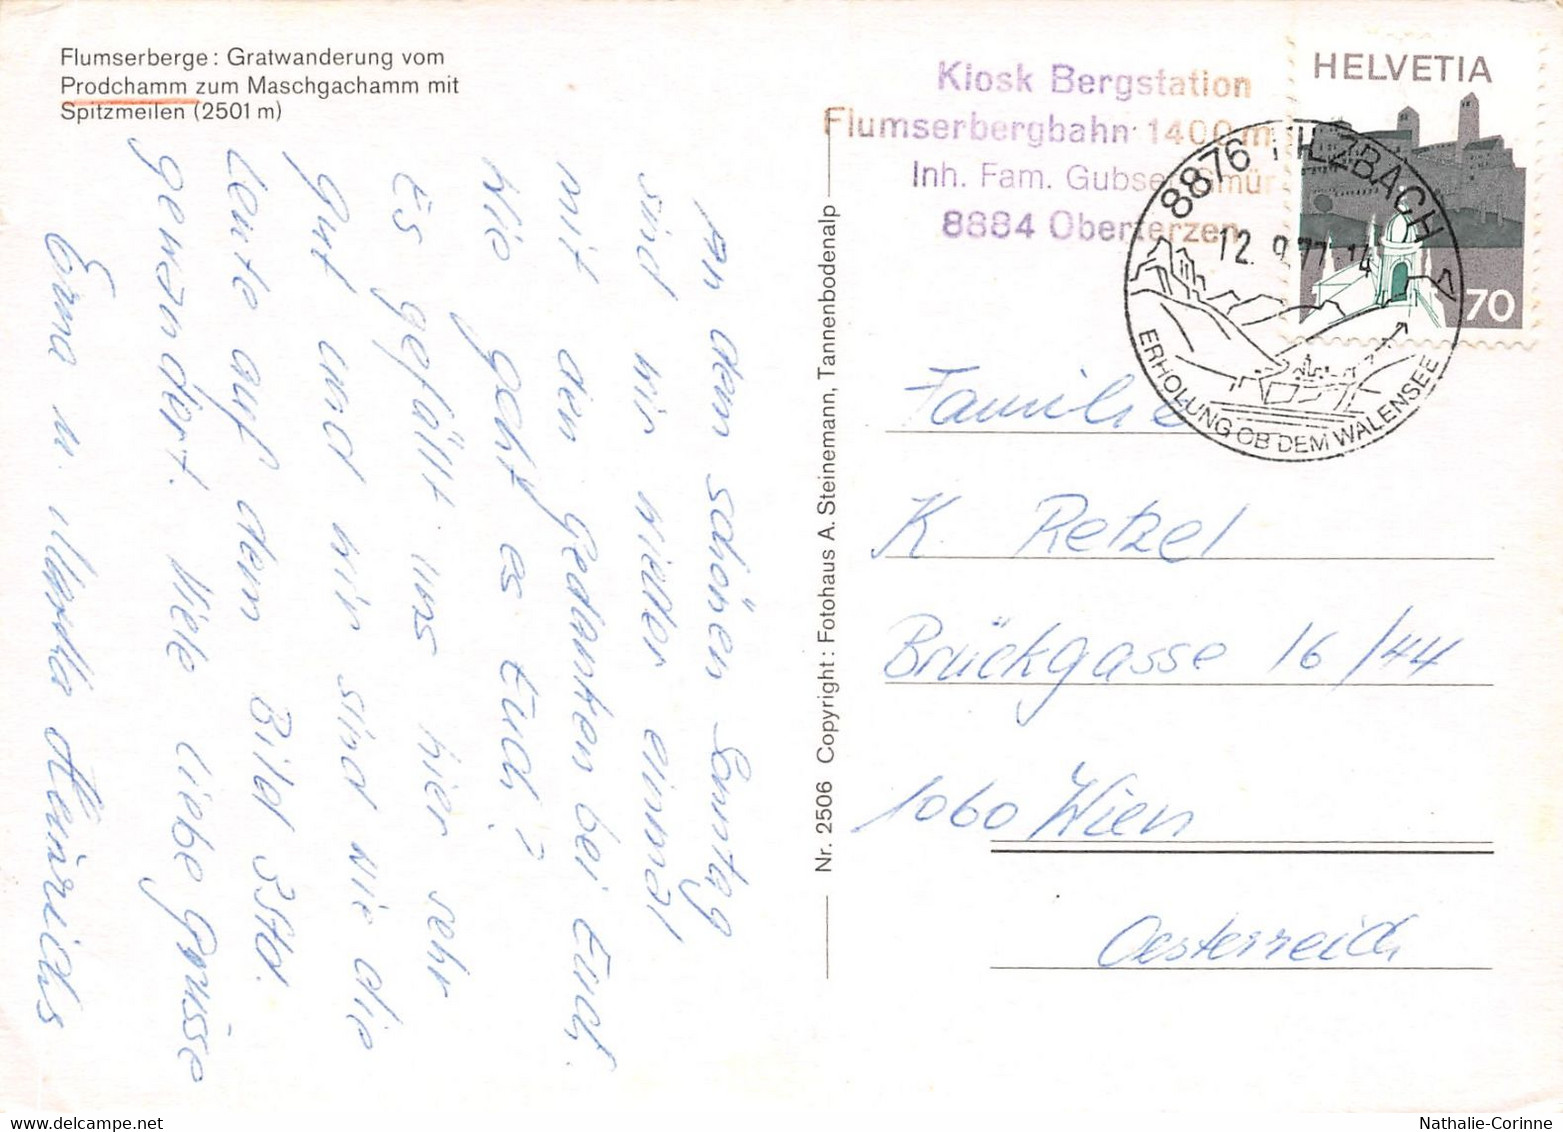 Flumserberge: Gratwanderung vom
Prodchamm zum Maschgachamm mit
Spitzmeilen (2501 m)
An dem schönen Sonntag
sind wir wieder einmal
mit den Gedanken bei Euch.
Wie geht es Euch?
Es gefällt uns hier sehr
gut und wir sind wie die
Leute auf dem Bild 3 Std.
gewandert. Viele liebe Grüsse
Erna u. Heinrichs
Nr. 2506 Copyright: Fotohaus A. Steinemann, Tannenbodenalp
Kiosk Bergstation
Flumserbergbahn 1400 m
Inh. Fam. Gubse
8884 Oberterzen
HELVETIA
70
8876 FILZBACH
12. 9. 77. 14
ERHOLUNG OB DEM WALENSEE
Familie
K. Retzel
Brückgasse 16/44
1060 Wien
Oesterreich
Nathalie-Corinne